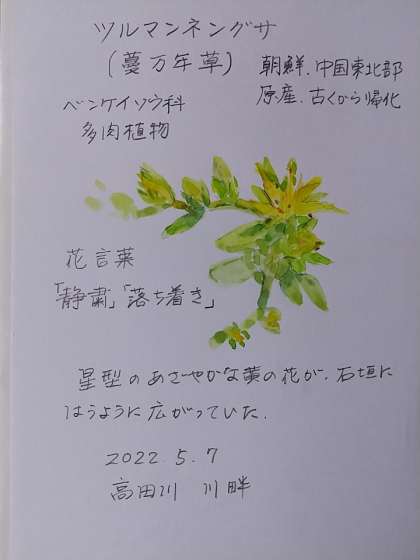 ツルマンネングサ
(蔓万年草)
朝鮮、中国東北部
原産、古くから帰化
ベンケイソウ科
多肉植物
花言葉
「静粛」「落ち着き」
星型のあざやかな黄の花が、石垣に
はうように広がっていた.
2022.5.7
高田川 川畔